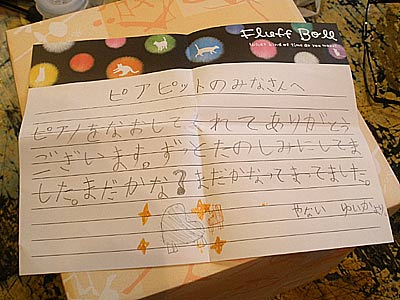 Fluff Boll
What kind of time do you want?
ピアピットのみなさんへ
ピアノをなおしてくれてありがとう
ございます。ずっとたのしみにしてま
した。まだかな?まだかなってまってました。
やない ゆいかより